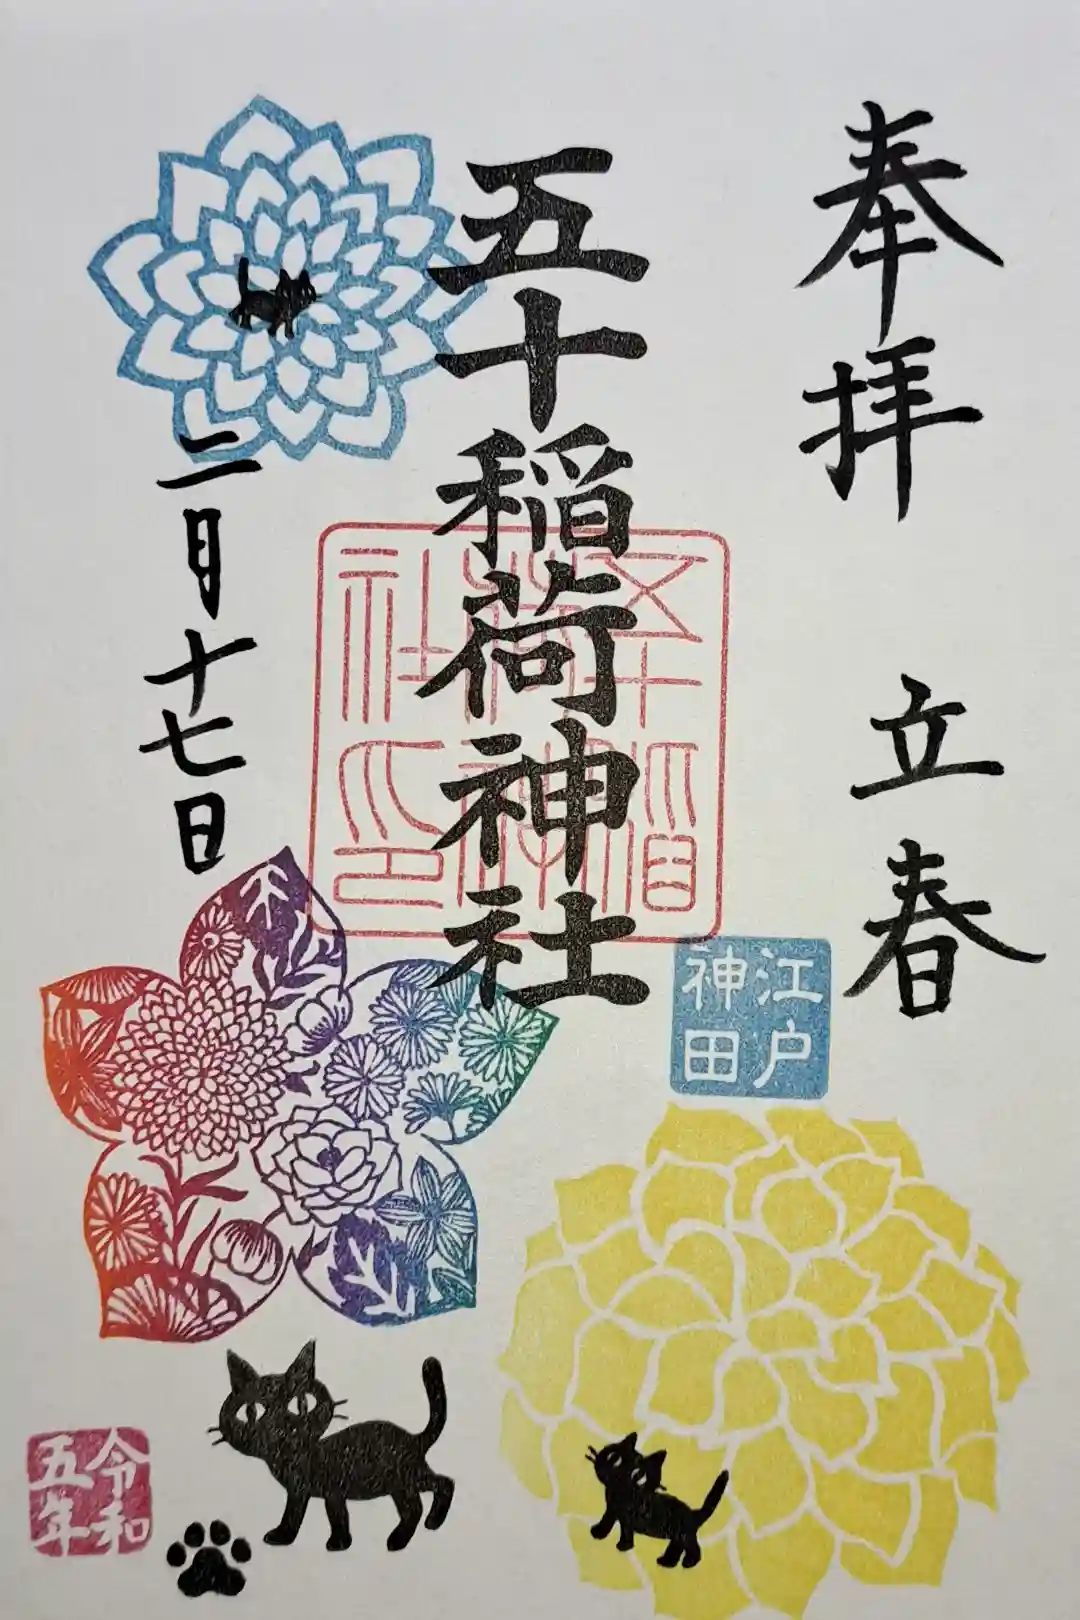 奉拝 立春
五十稲荷神社
五十稲荷神社印
江戸神田
二月十七日
令和五年